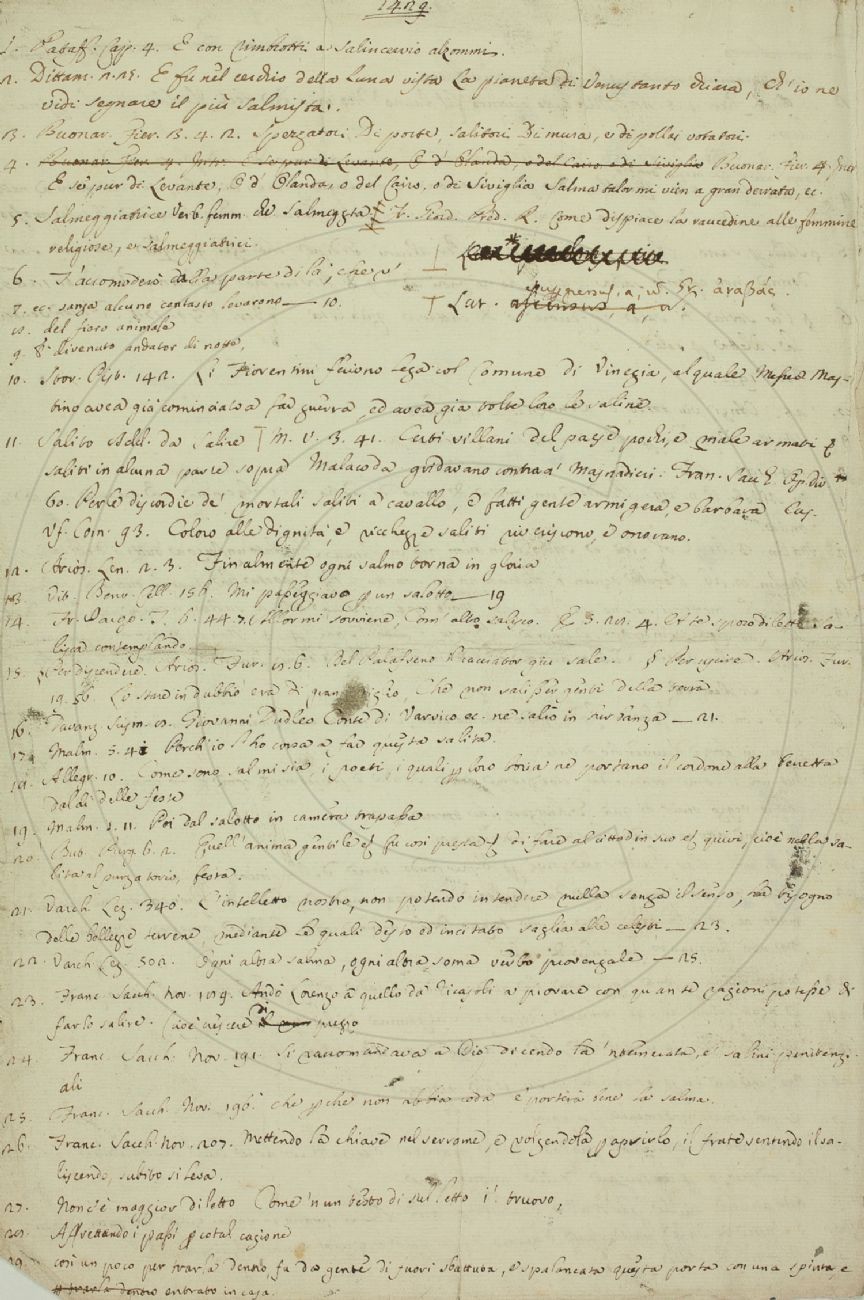 1429.
1. Pataff. Cap. 4. E con Zimbotti a salincervio
2. Dittam. 2. 25. E fu nel cerchio della Luna vista La pianeta di Venus tanto chiara, Ch'io ne
vidi segnare il più salmista.
3. Buonar. Fier. 3. 4. 2. Spezzatori Di porte, salitori Di mura, e di pollai votatori
4. Buonar. Fier. 4. Intr. E se pur di Levante, O d'Olanda, o del Cairo, o di Siviglia Buonar. Fier. 4. Intr.
E se pur di Levante, O d'Olanda, o del Cairo, o di Siviglia Salma talor mi vien a gran derrata, ec.
5. Salmeggiatrice Verb. femm. Che Salmeggia Fr. Giord. Pred. R. Come dispiace la raucedine alle femmine
religiose, e salmeggiatrici.
6. T'accomoderò dalla parte di là, che v'
7. ec. sanza alcuno contasto levarono — 10.
Lat.
8. del fiero animale
9. È divenuto andator di notte,
10. Stor. Pist. 142. Li Fiorentini feciono lega col Comune di Vinegia, al quale Messer Mas-
tino avea già cominciata a far guerra, ed avea già tolte loro le saline.
11. Salito Add. da Salire M. V. 3. 41. Certi villani del paese pochi, e male armati
saliti in alcuna parte sopra Malacoda gridavano contra a' Masnadieri. Fran. Sacch. Op. div.
60. Per le discordie de' mortali saliti a cavallo, e fatti gente armigera, e barbara Cas.
Uf. Com. 93. Coloro alle dignità, e ricchezze saliti riveriscono, e onorano.
12. Arios. Len. 2. 3. Finalmente ogni salmo torna in gloria
13. Vit. Benv. Cell. 156. Mi passeggiavo per un salotto — 19
14. Fr. Iacop. T. 6. 44. 7. Allor mi sovviene, Com' alto salisco. E 3. 21. 4. sposo diletto sa-
lisca contemplando.
15. Per discendere. Arios. Fur. 6. Del Palafreno il cacciator giù sale. § Per uscire. Arios. Fur.
19. 56. Lo stare in dubbio era di gran periglio, Che non salisser genti della terra
16. Davanz. Scism. Giovanni Dudleo Conte di Varvico ec. ne salìo in burbanza — 21.
17. Malm. 5. 4 Perch'io ho corsa a far questa salita
18. Allegr. 10. Come sono salmisia, i poeti, i quali per loro boria ne portano il cordone alla berretta
Dal dì delle feste
19. Malm. 1. 11. Poi dal salotto in camera trapassa
20. But. Purg. 6. 2. Quell'anima gentile ec. fu così presta ec. di fare al cittadin suo ec. quivi, cioè nella sa-
lita al purgatorio, festa.
21. Varch. Lez. 340. L'intelletto nostro, non potendo intendere nulla senza il senso, ha bisogno
delle bellezze terrene, mediante le quali desto ed incitato saglia alle celesti — 23.
22. Varch. Lez. 502. Ogni altra salma, ogni altra soma verbo provenzale — 25.
23. Franc. Sacch. Nov. 109. Andò Lorenzo a quello da Ricasoli a provare con quante ragioni potesse di
farlo salire. Cioè crescere di prezzo
24. Franc. Sacch. Nov. 191. Si raccomandava a Dio dicendo la 'ntemerata, e' salmi penitenzi-
ali
25. Franc. Sacch. Nov. 196. Che perchè non abbia coda e' porterà bene la salma.
26. Franc. Sacch. Nov. 207. Mettendo la chiave nel serrame, e volgendola per aprirlo, il frate sentendo il sa-
liscendo, subito si leva.
27. Non è maggior diletto Come 'n un testo di sul letto i' truovo,
28. Affrettando i passi per cotal cagione
29. così un poco per trarla dentro fu da gente di fuori sbattuta, e spalancata questa porta con una spinta, e
trarla dentro entrato in casa.